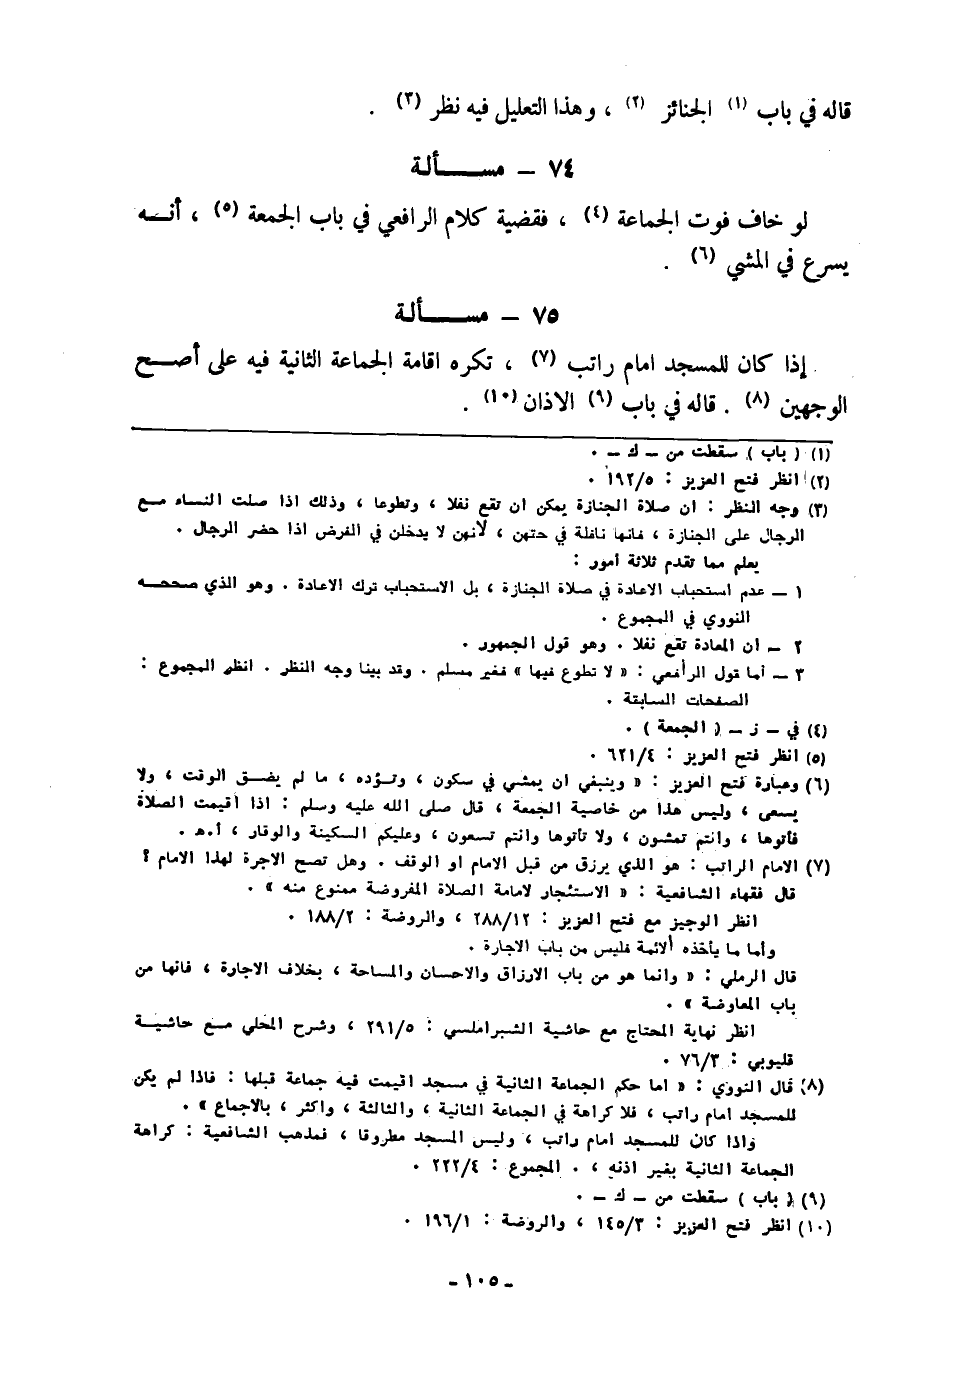 قاله في باب (١) الجنائز (٢) ، وهذا التعليل فيه نظر (٣) .
٧٤ – مســـــألة
لو خاف فوت الجماعة (٤) ، فقضية كلام الرافعي في باب الجمعة (٥) ، أنــه
يسرع في المشي (٦) .
٧٥ – مســـــألة
إذا كان للمسجد امام راتب (٧) ، تكره اقامة الجماعة الثانية فيه على أصــح
الوجهين (٨) . قاله في باب (٩) الاذان (١٠) .
(١) ( باب ) سقطت من – ك – .
(٢) انظر فتح العزيز : ١٩٢/٥ .
(٣) وجه النظر : ان صلاة الجنازة يمكن ان تقع نفلا ، وتطوعا ، وذلك اذا صلت النساء مــع
الرجال على الجنازة ، فانها نافلة في حتهن ، لأنهن لا يدخلن في الفرض اذا حضر الرجال .
يعلم مما تقدم ثلاثة أمور :
١ – عدم استحباب الاعادة في صلاة الجنازة ، بل الاستحباب ترك الاعادة . وهو الذي صححــه
النووي في المجموع .
٢ – ان المعادة تقع نفلا . وهو قول الجمهور .
٣ – أما قول الرافعي : « لا تطوع فيها » فغير مسلم . وقد بينا وجه النظر . انظر المجموع :
الصفحات السابقة .
(٤) في – ز – ( الجمعة ) .
(٥) انظر فتح العزيز : ٦٢١/٤ .
(٦) وعبارة فتح العزيز : « وينبغي ان يمشي في سكون ، وتؤده ، ما لم يضــق الوقت ، ولا
يسعى ، وليس هذا من خاصية الجمعة ، قال صلى الله عليه وسلم : اذا أقيمت الصلاة
فأتوها ، وانتم تمشون ، ولا تأتوها وانتم تسعون ، وعليكم السكينة والوقار ، أ.هـ .
(٧) الامام الراتب : هو الذي يرزق من قبل الامام او الوقف . وهل تصح الاجرة لهذا الامام ؟
قال فقهاء الشافعية : « الاستئجار لامامة الصلاة المفروضة ممنوع منه » .
انظر الوجيز مع فتح العزيز : ٢٨٨/١٢ ، والروضة : ١٨٨/٢ .
وأما ما يأخذه ألائمة فليس من باب الاجارة .
قال الرملي : « وانما هو من باب الارزاق والاحسان والمساحة ، بخلاف الاجارة ، فانها من
باب المعاوضة » .
انظر نهاية المحتاج مع حاشية الشبراملسي : ٢٩١/٥ ، وشرح المحلي مــع حاشيــة
قليوبي : ٧٦/٣ .
(٨) قال النووي : « اما حكم الجماعة الثانية في مسجد اقيمت فيه جماعة قبلها : فاذا لم يكن
للمسجد امام راتب ، فلا كراهة في الجماعة الثانية ، والثالثة ، واكثر ، بالاجماع » .
واذا كان للمسجد امام راتب ، وليس المسجد مطروقا ، فمذهب الشافعية : كراهة
الجماعة الثانية بغير اذنه ، . المجموع : ٢٢٢/٤ .
(٩) ( باب ) سقطت من – ك – .
(١٠) انظر فتح العزيز : ١٤٥/٣ ، والروضة : ١٩٦/١ .
– ١٠٥ –